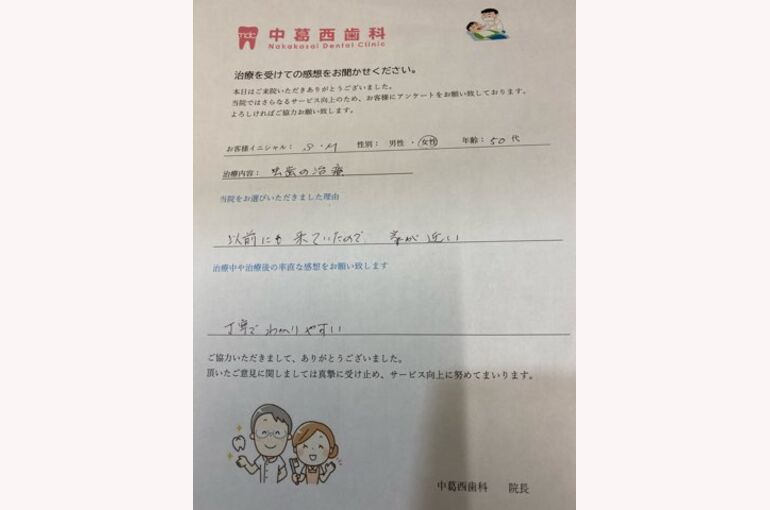 ndc 中葛西歯科
Nakakasai Dental Clinic
治療を受けての感想をお聞かせください。
本日はご来院いただきありがとうございました。
当院ではさらなるサービス向上のため、お客様にアンケートをお願い致しております。
よろしければご協力お願い致します。
お客様イニシャル： S・M 性別： 男性 ・ 女性 年齢：50代
治療内容： 虫歯の治療
当院をお選びいただきました理由
以前にも来ていたので 家が近い
治療中や治療後の率直な感想をお願い致します
丁寧でわかりやすい
ご協力いただきまして、ありがとうございました。
頂いたご意見に関しましては真摯に受け止め、サービス向上に努めてまいります。
中葛西歯科 院長